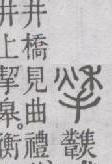 井橋見曲禮
井上挈皋。衡